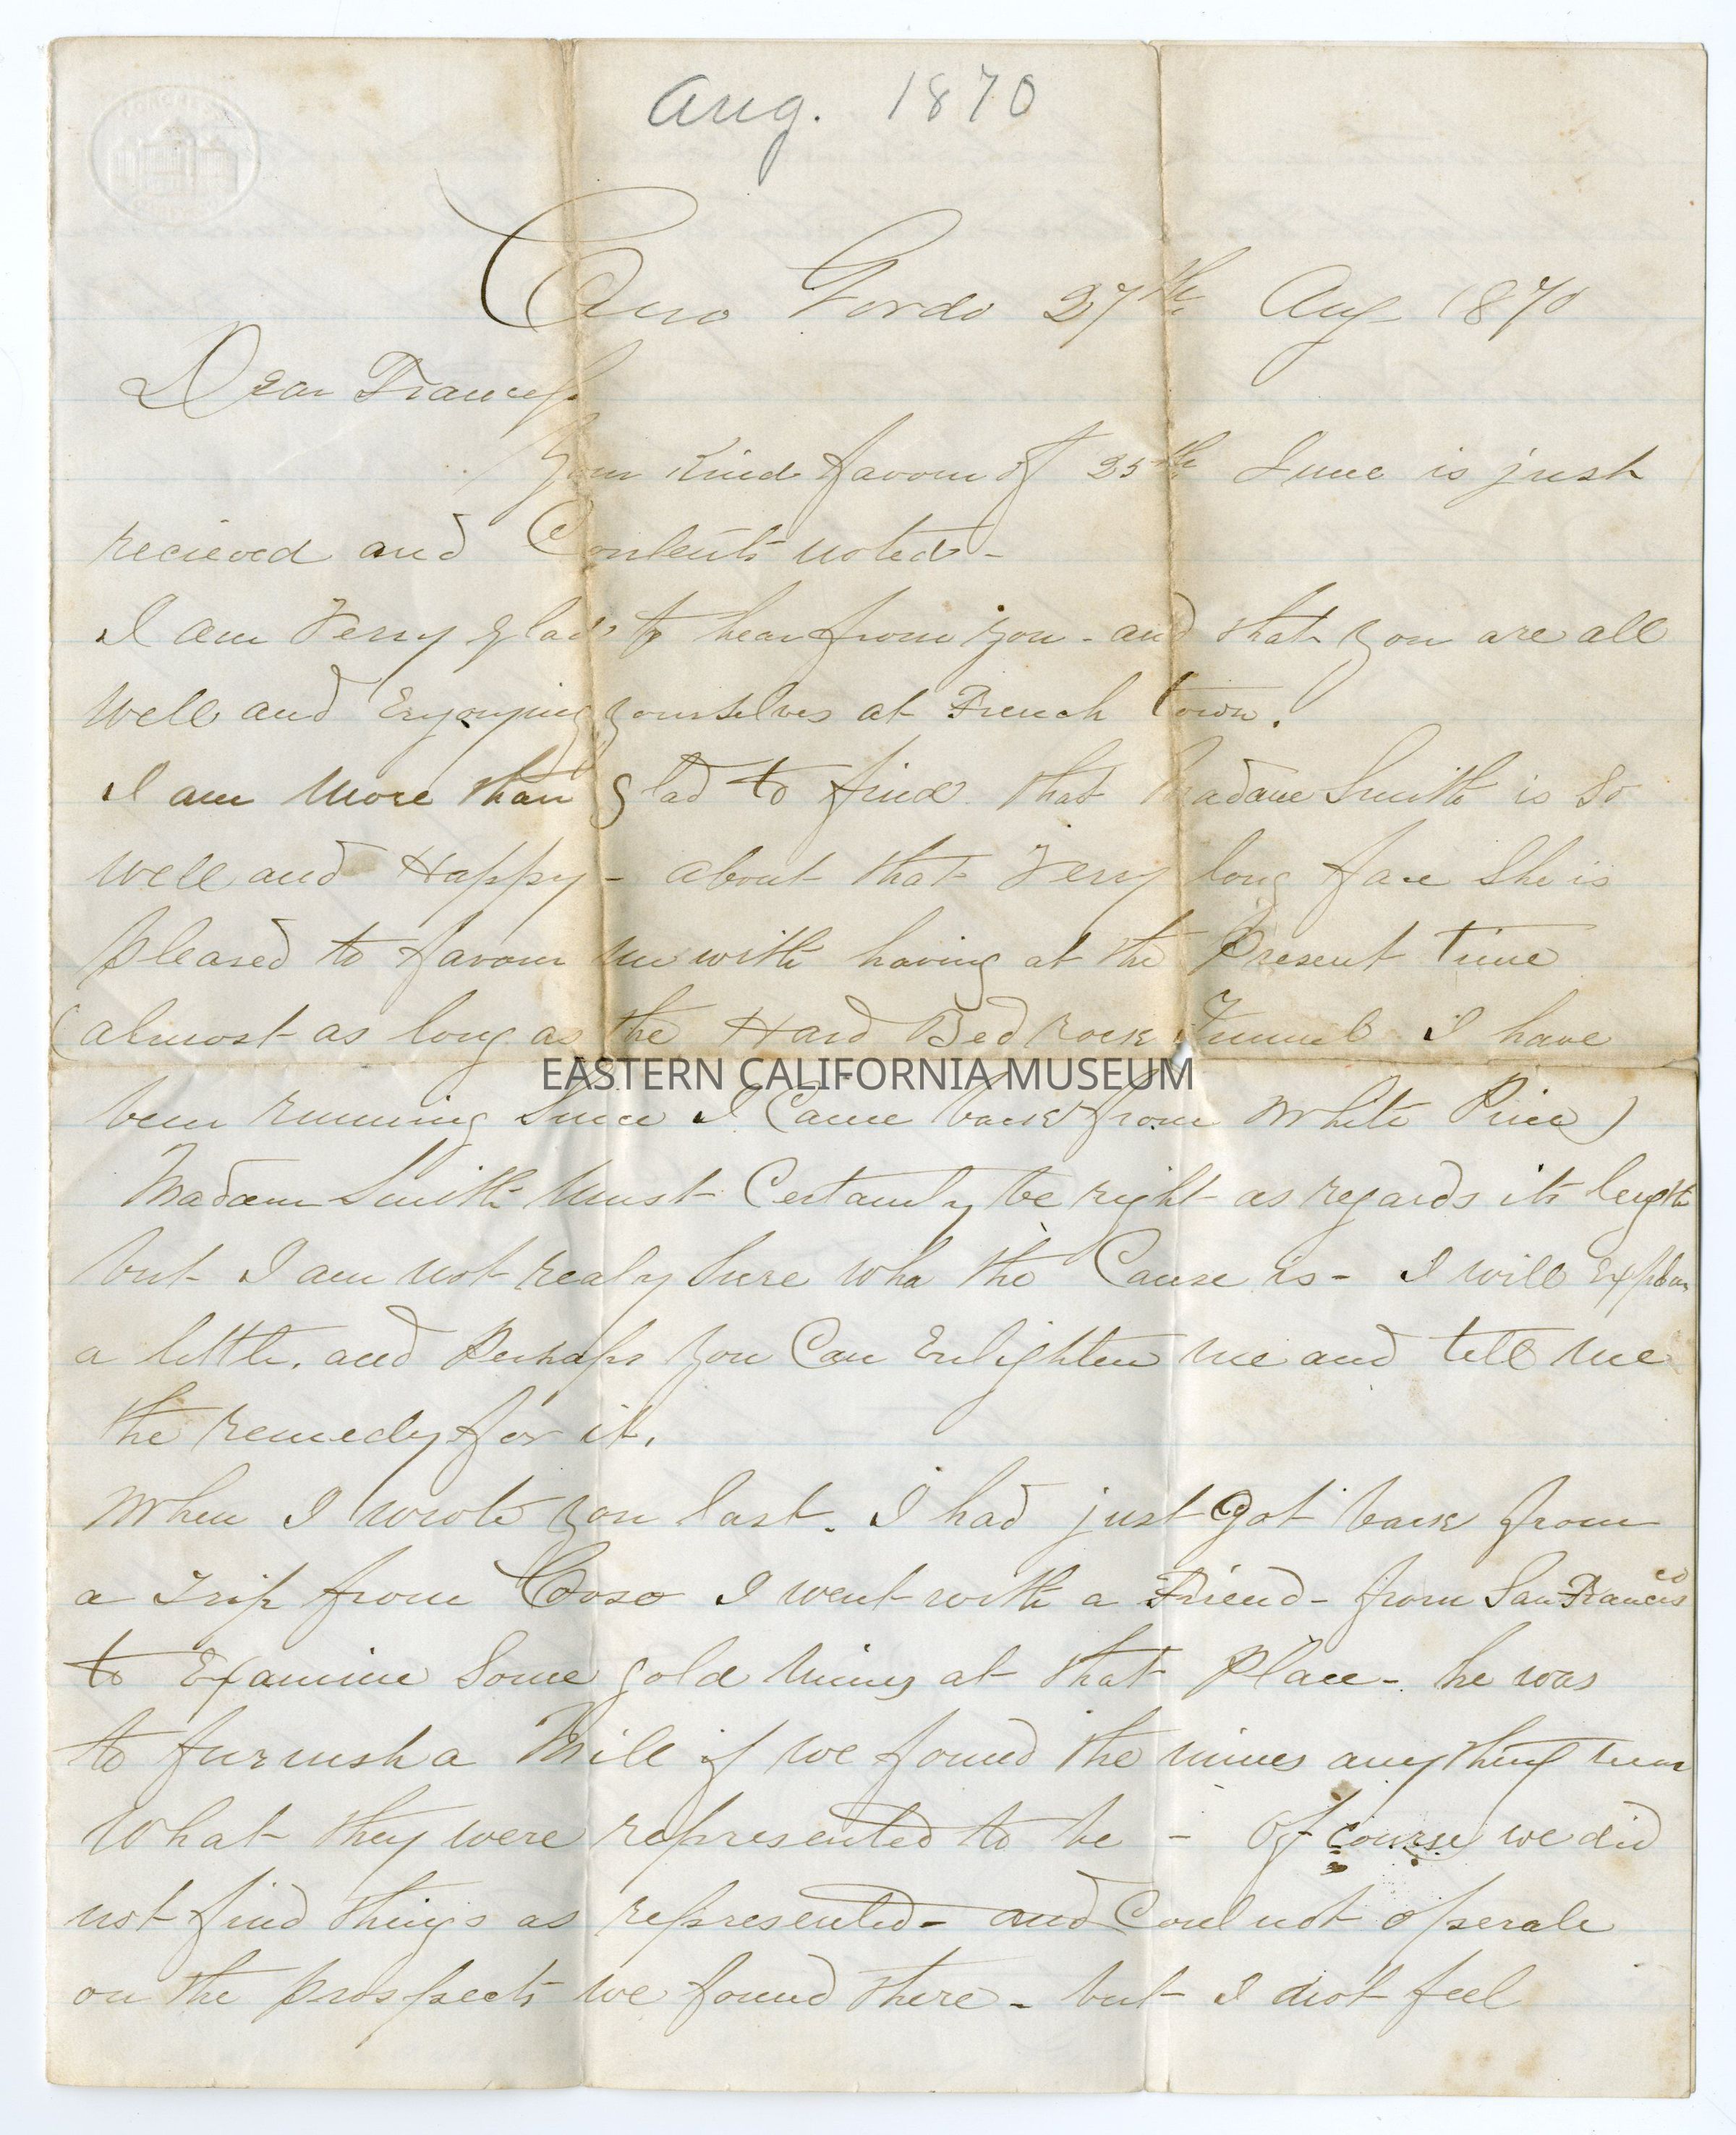 Aug. 1870
Cerro Gordo 27th Aug 1870
Dear Frances
Your Kind favour of 25th June is just
recieved and Contents noted -
I am Verry glad to hear from you - and that you are all
well and Enjoying yourselves at French town.
I am More than glad to find that Madame Smith is so
well and Happy - about that Verry long face She is
pleased to favour me with having at the Present time
(almost as long as the Hard Bed rock Tunnel I have
been running Since I Came back from White Pine)
Madam Smith Must Certainly be right as regards its length
but I am not realy Sure wha the Cause is - I will Explain
a little, and Perhaps you Can Enlighten me and tell me
the remedy for it.
When I wrote you last. I had just got back from
a Trip from Coso I went with a Friend - from San Francisco
to Examine Some gold Mines at that Place - he was
to furnish a Mill if we found the mines anything near
What they were represented to be - Of course we did
not find things as represented - and Coul not operate
on the prospects we found there - but I diot feel
EASTERN CALIFORNIA MUSEUM